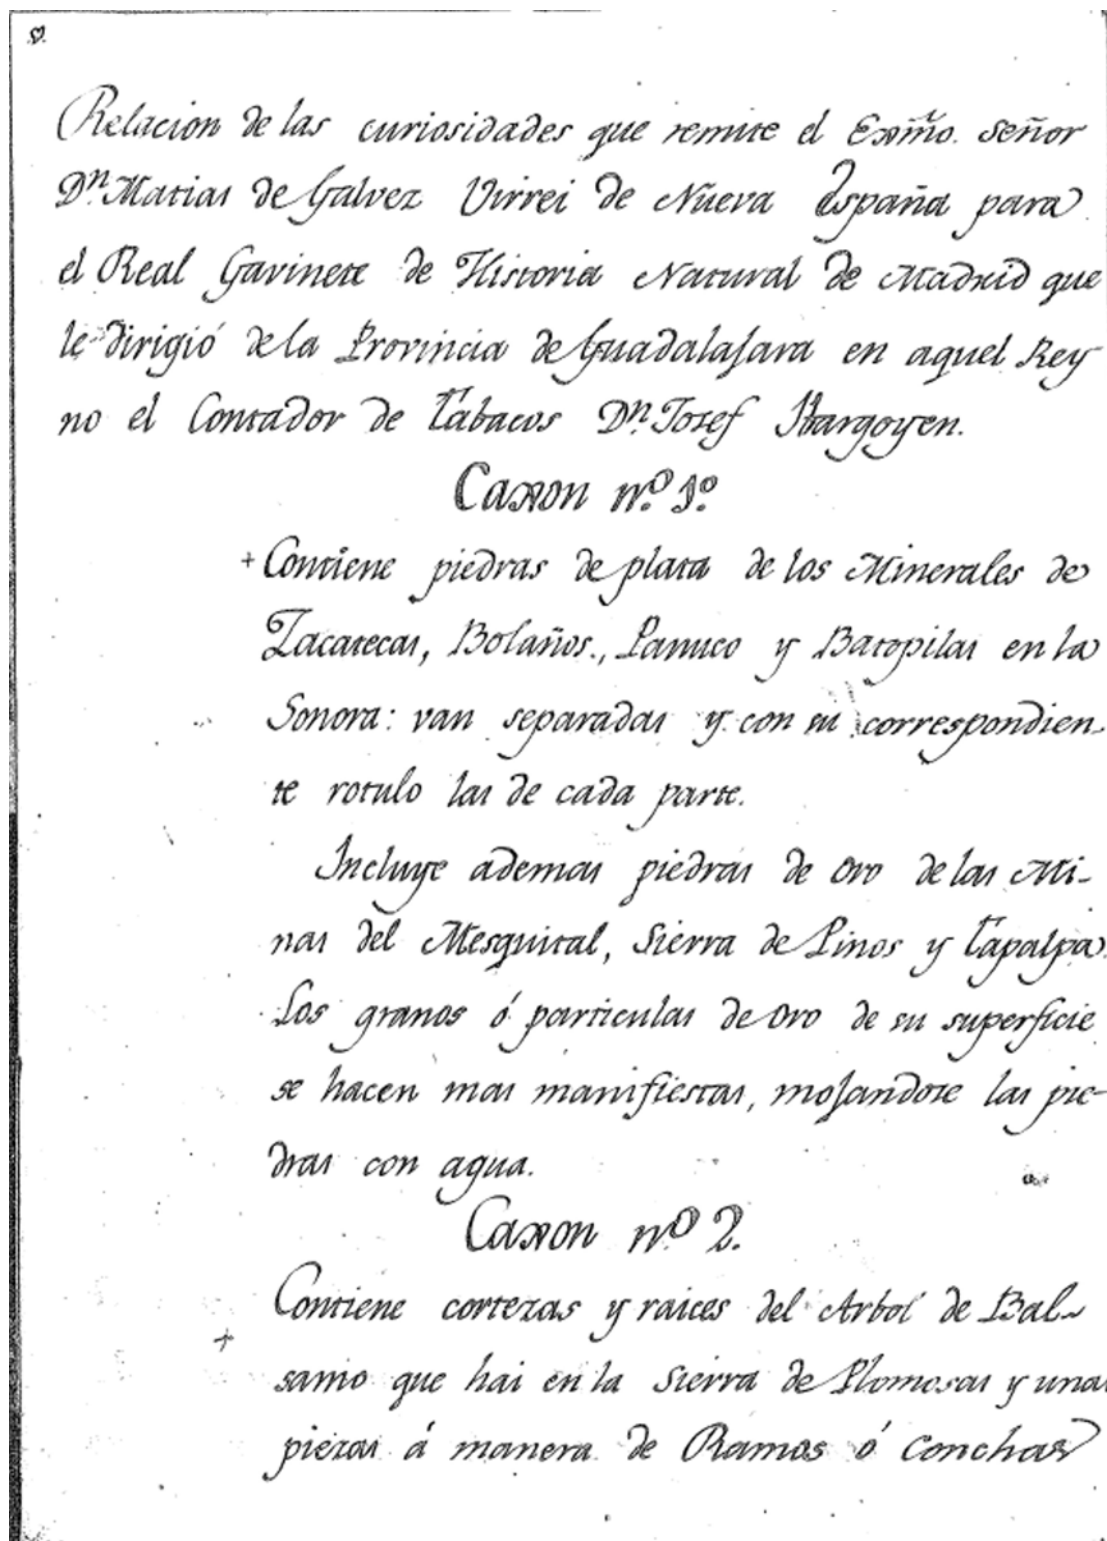 Relacion de las curiosidades que remite el Exmo. Señor
Dn. Matias de Galvez Virrei de Nueva España para
el Real Gavinete de Historia Natural de Madrid que
le dirigió de la Provincia de Guadalajara en aquel Rey
no el Contador de Tabacos Dn. Josef Ybargoyen.
Caxon nº. 1º.
+ Contiene piedras de plata de los Minerales de
Zacatecas, Bolaños., Panuco y Batopilas en la
Sonora: van separadas y con su correspondien-
te rotulo las de cada parte.
Incluye ademas piedras de oro de las Mi-
nas del Mesquital, Sierra de Pinos y Tapalpa.
Los granos ó particulas de oro de su superficie
se hacen mas manifiestas, mojandose las pie-
dras con agua.
Caxon nº 2.
+ Contiene cortezas y raices del Arbol de Bal-
samo que hai en la Sierra de Plomosas y unas
piezas á manera de Ramos ó Conchas